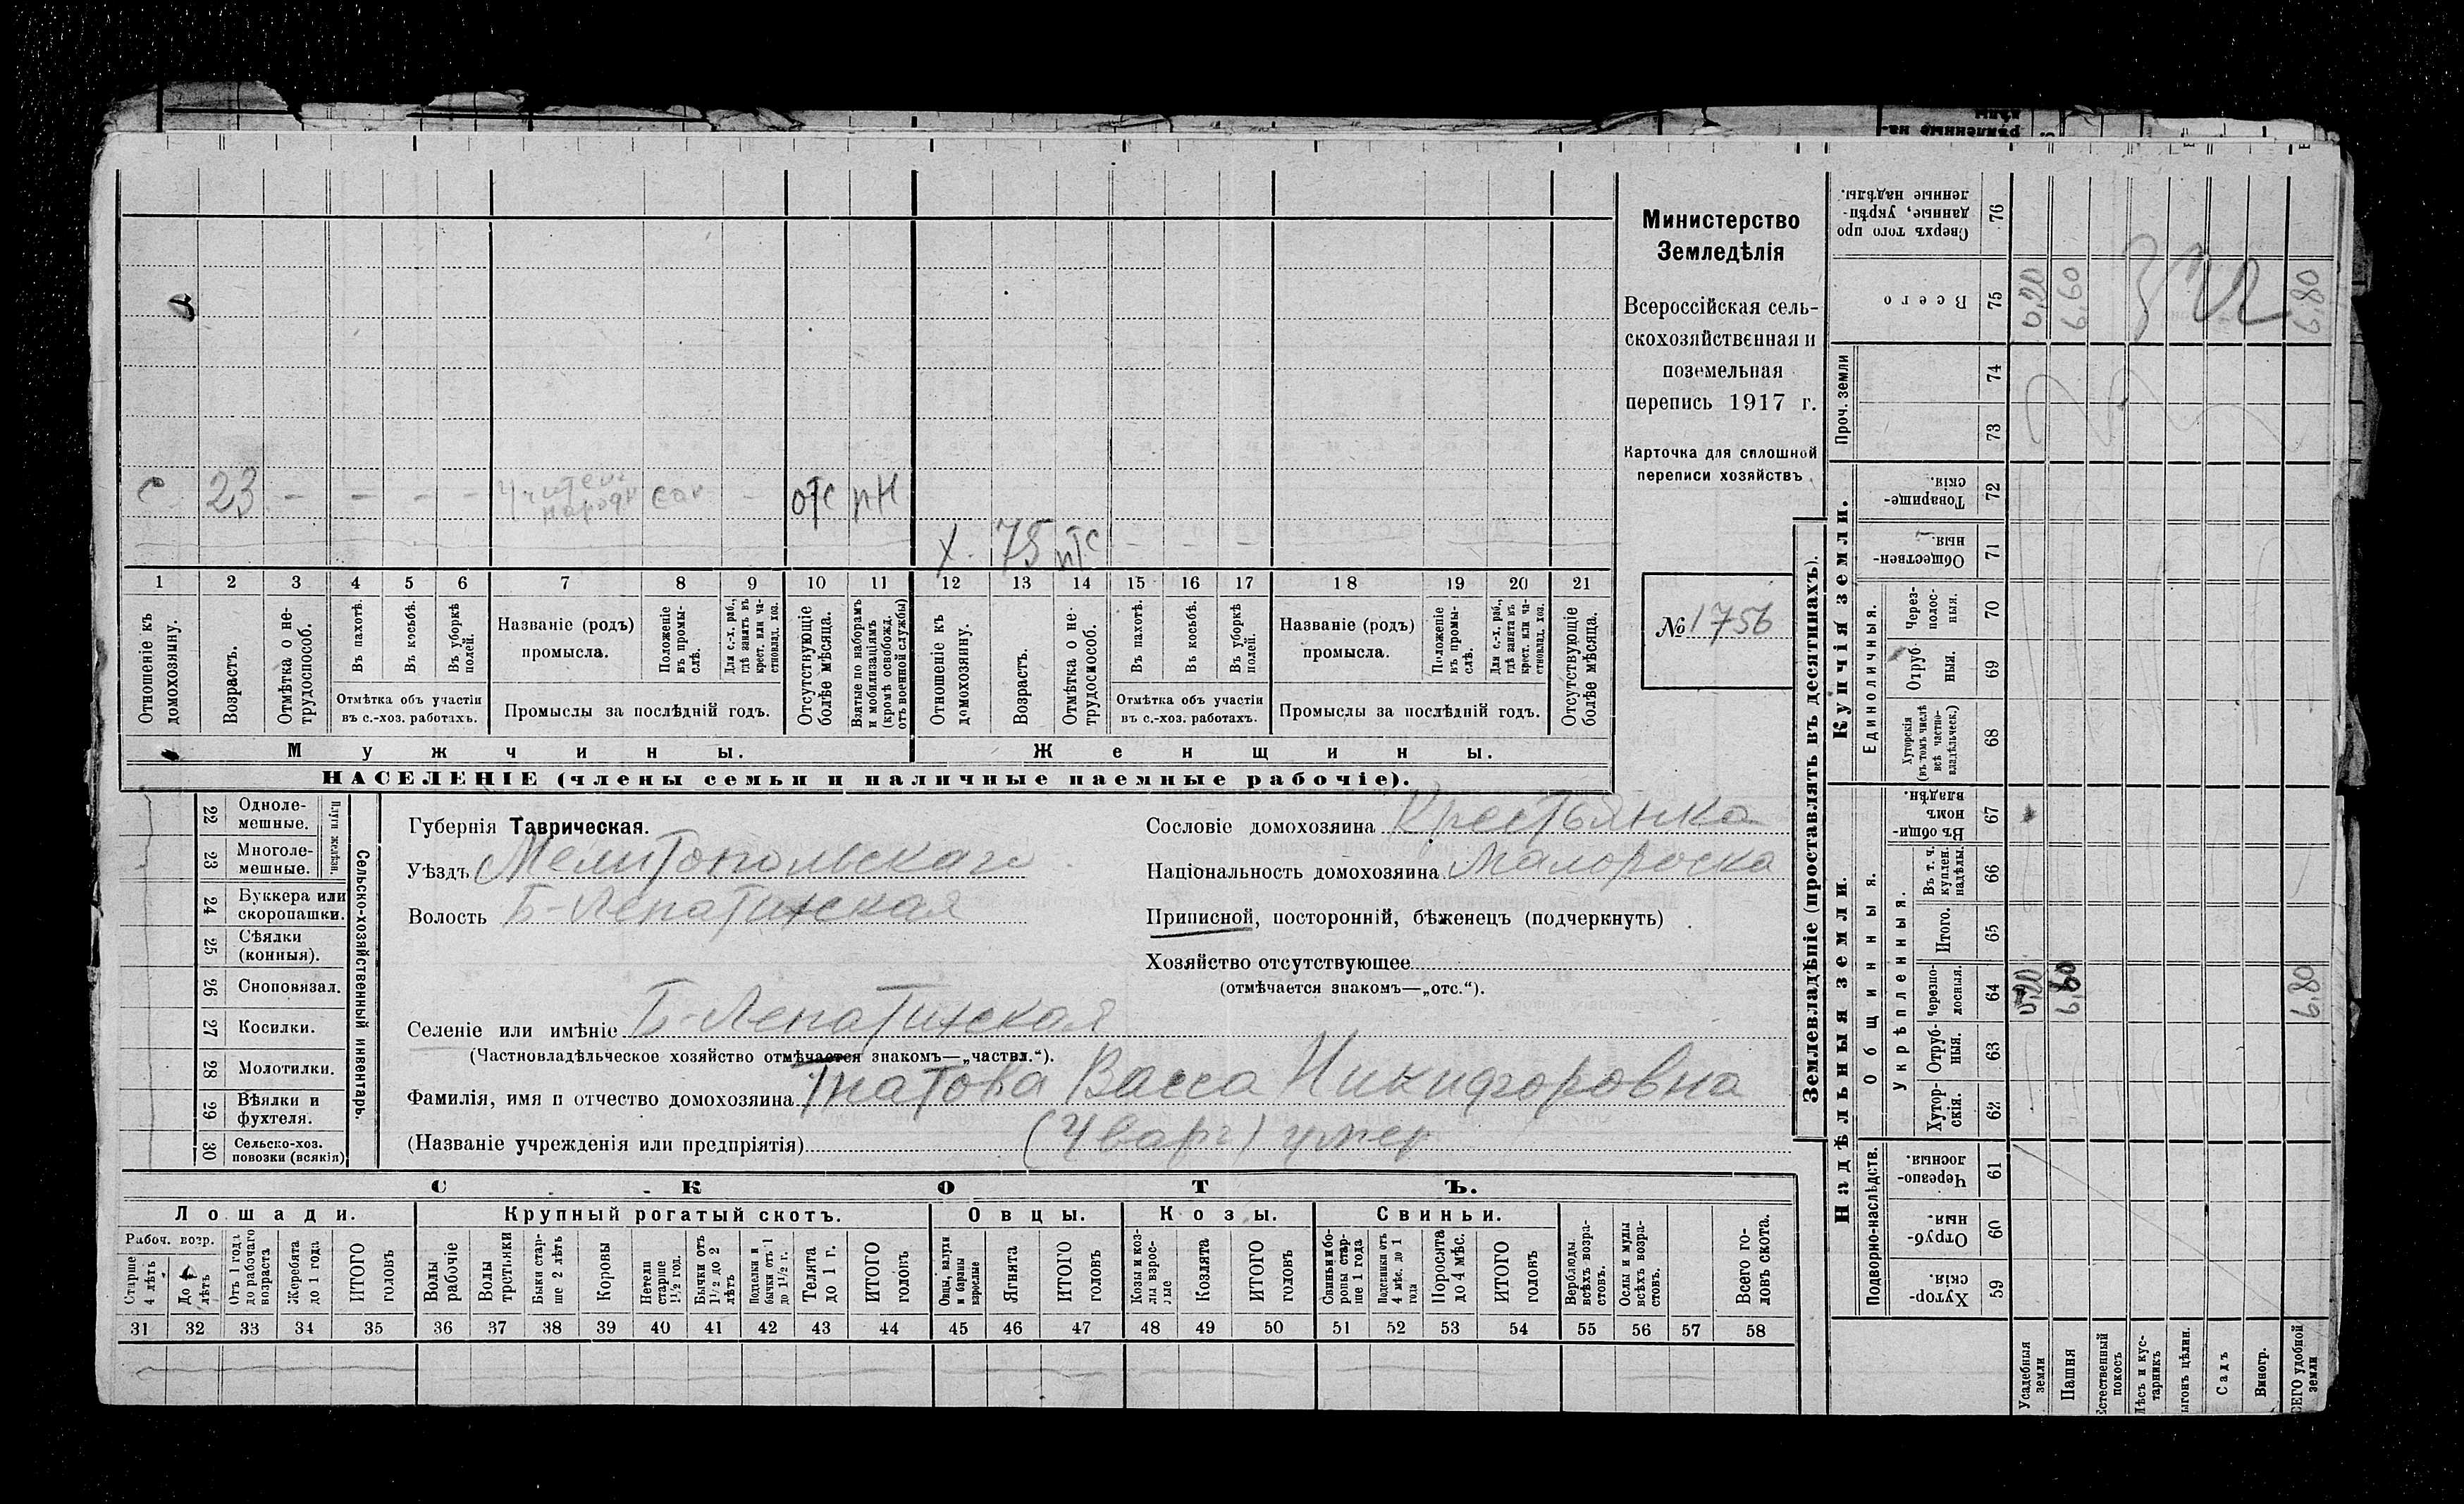 с 23 - - - - учител. народн - отс пн
Х. 75 птс - - -
1 2 3 4 5 6 7 8 9 10 11 12 13 14 15 16 17 18 19 20 21
Отношеніе къ домохозяину.
Возрастъ.
Отмѣтка о не-трудоспособ.
Въ пахотѣ.
Въ косьбѣ.
Въ уборкѣ полей.
Отмѣтка объ участіи
въ с.-хоз. работахъ.
Названіе (родъ)
промысла.
Положеніе въ промы-слѣ.
Для с.-х. раб., гдѣ занятъ въ крест. или ча-стновлад. хоз.
Промыслы за послѣдній годъ.
Отсутствующіе болѣе мѣсяца.
Взятые по наборамъ и мобилизаціямъ (кромѣ освобожд. отъ военной службы)
Отношеніе къ домохозяину.
Возрастъ.
Отмѣтка о не-трудоспособ.
Въ пахотѣ.
Въ косьбѣ.
Въ уборкѣ полей.
Отмѣтка объ участіи
въ с.-хоз. работахъ.
Названіе (родъ)
промысла.
Положеніе въ промы-слѣ.
Для с.-х. раб., гдѣ занята въ крест. или ча-стновлад. хоз.
Промыслы за послѣдній годъ.
Отсутствующіе болѣе мѣсяца.
Мужчины.
Женщины.
НАСЕЛЕНІЕ (члены семьи и наличные наемные рабочіе).
Министерство
Земледѣлія
Всероссійская сель-
скохозяйственная и
поземельная
перепись 1917 г.
Карточка для сплошной
переписи хозяйствъ
№ 1756
22 Одноле-мешные.
23 Многоле-мешные.
Плуги желѣзн.
24 Буккера или скоропашки.
25 Сѣялки (конныя).
26 Сноповязал.
27 Косилки.
28 Молотилки.
29 Вѣялки и фухтеля.
30 Сельско-хоз. повозки (всякія)
Сельско-хозяйственный инвентарь.
Губернія Таврическая.
Уѣздъ Мелитопольскаго
Волость Б-Лепатихская
Сословіе домохозяина Крестьянка
Національность домохозяина Малороска
Приписной, посторонній, бѣженецъ (подчеркнуть)
Хозяйство отсутствующее
(отмѣчается знакомъ—„отс.“).
Селеніе или имѣніе Б-Лепатихская
(Частновладѣльческое хозяйство отмѣчается знакомъ—„частвл.“).
Фамилія, имя и отчество домохозяина Васса Никифоровна
(Названіе учрежденія или предпріятія) умер
СКОТЪ.
Лошади. Крупный рогатый скотъ. Овцы. Козы. Свиньи.
Рабоч. возр.
Старше 4 лѣтъ
До 4 лѣтъ
Отъ 1 года до рабочаго возраста
Жеребята до 1 года
ИТОГО головъ
Волы рабочіе
Волы третьяки
Быки стар-ше 2 лѣтъ
Коровы
Нетели старше 1½ год.
Бычки отъ 1½ до 2 лѣтъ
Подтелки и бычки отъ 1 до 1½ г.
Телята до 1 г.
ИТОГО головъ
Овцы, валухи и бараны взрослые
Ягнята
ИТОГО головъ
Козы и коз-лы взрос-лые
Козлята
ИТОГО головъ
Свиньи и бо-ровы стар-ше 1 года
Подсвинки отъ 4 мѣс. до 1 года
Поросята до 4 мѣс.
ИТОГО головъ
Верблюды всѣхъ возра-стовъ.
Ослы и мулы всѣхъ возра-стовъ.
Всего го-ловъ скота.
31 32 33 34 35 36 37 38 39 40 41 42 43 44 45 46 47 48 49 50 51 52 53 54 55 56 57 58
Землевладѣніе (проставлять въ десятинахъ).
Сверхъ того про данные, укрѣп-ленные надѣлы. 76
Всего 75 0,20 6,60 6,80
Проч. земли 74
73
Купчія земли.
Товарище-скія. 72
Обществен-ныя. 71
Единоличныя.
Через-полос-ныя. 70
Отруб-ныя. 69
Хуторскія (въ томъ числѣ всѣ частно-владѣльческ.) 68
Надѣльныя земли.
Общинныя.
Въ общи-номъ владѣн. 67
Укрѣпленныя.
Въ т. ч. куплен. надѣлы. 66
Итого. 65
Черезпо-лосныя. 64 0,20 6,60 6,80
Отруб-ныя. 63
Хутор-скія. 62
Подворно-наслѣдств.
Черезпо-лосныя. 61
Отруб-ныя. 60
Хутор-скія. 59
Усадебныя земли
Пашня
Естественный покосъ
Лѣсъ и кус-тарникъ
ыгонъ цѣлин.
Садъ
Виногр.
СЕГО удобной земли